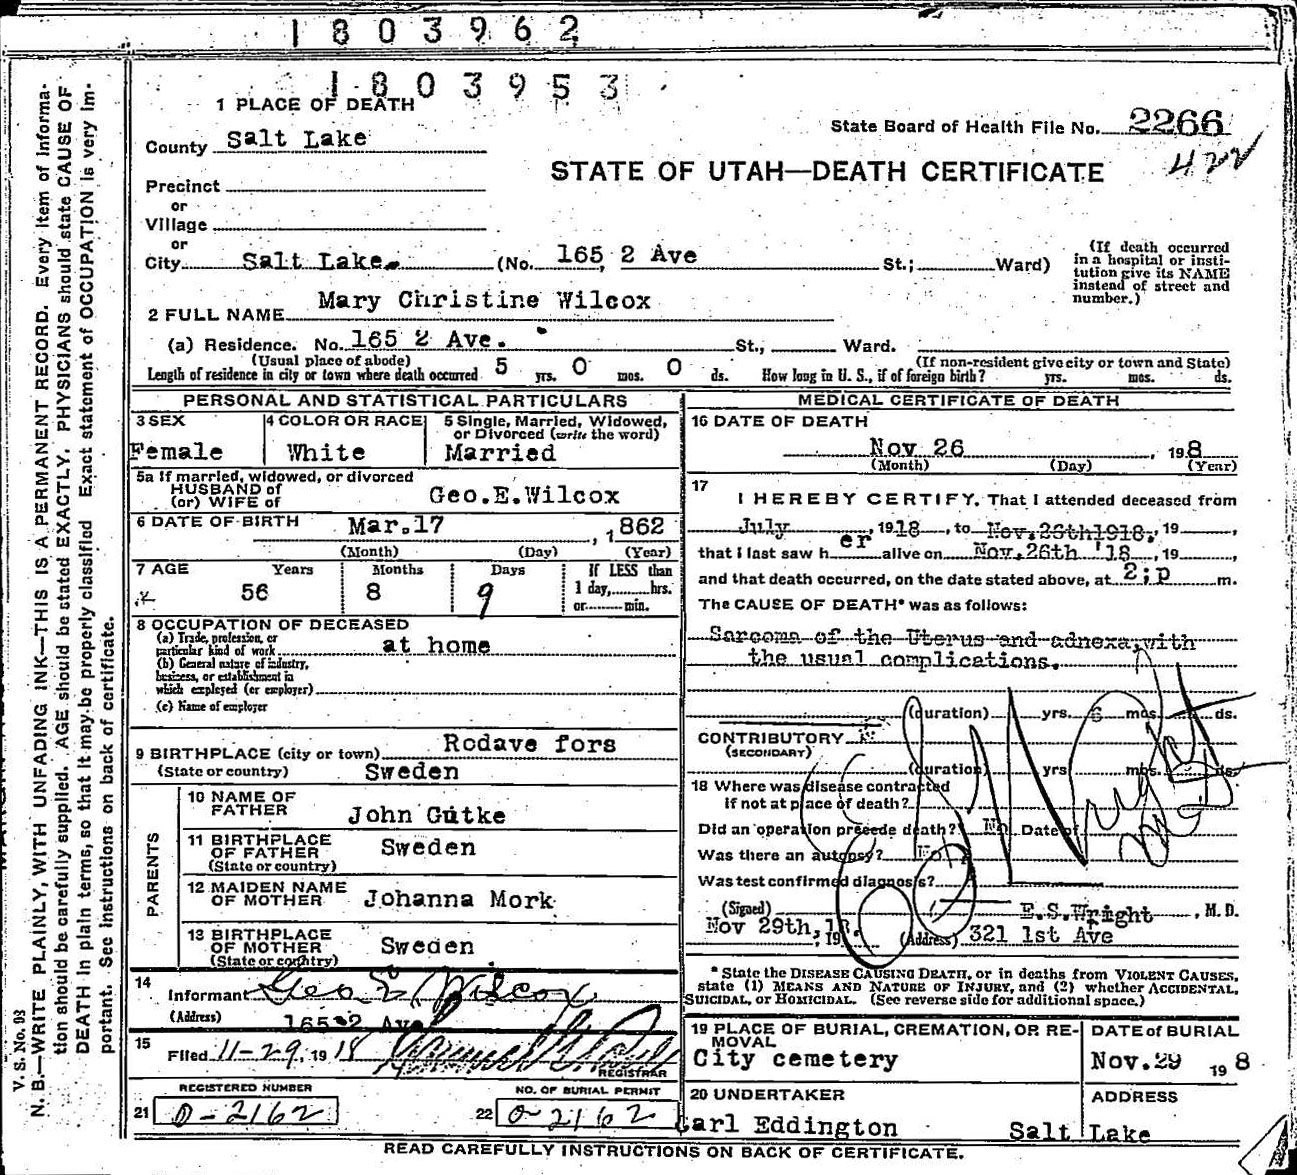 1803962
1803953
1 PLACE OF DEATH
State Board of Health File No. 2266
422
County Salt Lake
STATE OF UTAH—DEATH CERTIFICATE
Precinct
or
Village
or
City Salt Lake. (No. 165, 2 Ave St.; Ward)
(If death occurred in a hospital or insti-
tution give its NAME
instead of street and
number.)
2 FULL NAME Mary Christine Wilcox
(a) Residence. No. 165 2 Ave. St., Ward.
(Usual place of abode) (If non-resident give city or town and State)
Length of residence in city or town where death occurred 5 yrs. 0 mos. 0 ds. How long in U. S., if of foreign birth? yrs. mos. ds.
PERSONAL AND STATISTICAL PARTICULARS
3 SEX
Female
4 COLOR OR RACE
White
5 Single, Married, Widowed,
or Divorced (write the word)
Married
5a If married, widowed, or divorced
HUSBAND of
(or) WIFE of Geo.E.Wilcox
6 DATE OF BIRTH Mar.17, 1862
(Month) (Day) (Year)
7 AGE Years Months Days If LESS than
1 day, hrs.
or min.
56 8 9
8 OCCUPATION OF DECEASED
(a) Trade, profession, or
particular kind of work at home
(b) General nature of industry,
business, or establishment in
which employed (or employer)
(c) Name of employer
9 BIRTHPLACE (city or town) Rodave fors
(State or country) Sweden
PARENTS
10 NAME OF
FATHER John Gutke
11 BIRTHPLACE
OF FATHER Sweden
(State or country)
12 MAIDEN NAME
OF MOTHER Johanna Mork
13 BIRTHPLACE
OF MOTHER Sweden
(State or country)
14
Informant Geo. E. Wilcox
(Address) 165 2 Ave
15
Filed 11-29, 1918
REGISTRAR
REGISTERED NUMBER
21 O-2162
NO. OF BURIAL PERMIT
22 O-2162
MEDICAL CERTIFICATE OF DEATH
16 DATE OF DEATH
Nov 26, 198
(Month) (Day) (Year)
17
I HEREBY CERTIFY, That I attended deceased from
July, 1918, to Nov.26th1918., 19
that I last saw her alive on Nov.26th '18, 19
and that death occurred, on the date stated above, at 2;p m.
The CAUSE OF DEATH* was as follows:
Sarcoma of the Uterus and adnexa,with
the usual complications.
(duration) yrs. 6 mos. ds.
CONTRIBUTORY
(SECONDARY)
(duration) yrs. mos. ds.
18 Where was disease contracted
if not at place of death?
Did an operation precede death? No Date of
Was there an autopsy? No
Was test confirmed diagnosis?
(Signed) E.S.Wright, M. D.
Nov 29th,18., 19 (Address) 321 1st Ave
* State the DISEASE CAUSING DEATH, or in deaths from VIOLENT CAUSES,
state (1) MEANS AND NATURE OF INJURY, and (2) whether ACCIDENTAL,
SUICIDAL, or HOMICIDAL. (See reverse side for additional space.)
19 PLACE OF BURIAL, CREMATION, OR RE-
MOVAL
City cemetery
DATE of BURIAL
Nov.29 198
20 UNDERTAKER
Carl Eddington
ADDRESS
Salt Lake
READ CAREFULLY INSTRUCTIONS ON BACK OF CERTIFICATE.
V. S. No. 98
N. B.—WRITE PLAINLY, WITH UNFADING INK—THIS IS A PERMANENT RECORD. Every item of informa-
tion should be carefully supplied. AGE should be stated EXACTLY. PHYSICIANS should state CAUSE OF
DEATH in plain terms, so that it may be properly classified Exact statement of OCCUPATION is very im-
portant. See instructions on back of certificate.